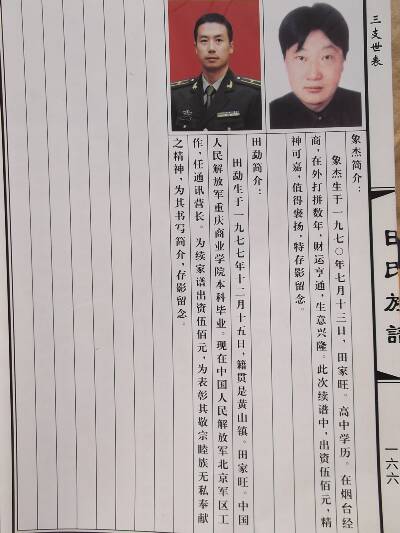 三支世表
田氏族譜
一六六
象杰简介：
象杰生于一九七〇年七月十三日，田家旺。高中学历。在烟台经
商，在外打拼数年，财运亨通，生意兴隆。此次续谱中，出资伍佰元，精
神可嘉，值得褒扬，特存影留念。
田勐简介：
田勐生于一九七七年十二月十五日，籍贯是黄山镇。田家旺。中国
人民解放军重庆商业学院本科毕业。现在中国人民解放军北京军区工
作，任通讯营长。为续家谱出资伍佰元，为表彰其敬宗睦族无私奉献
之精神，为其书写简介，存影留念。